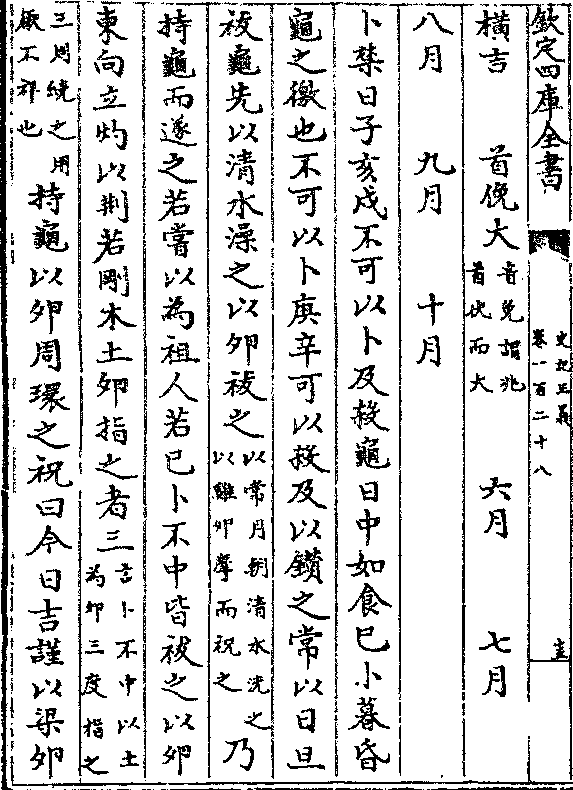 欽定四庫全書
史記正義
卷一百二十八
橫吉 首俛大音免謂兆首伏而大 六月 七月
八月 九月 十月
卜禁日子亥戌不可以卜及殺龜日中如食已卜暮昏
龜之徼也不可以卜庚辛可以殺及以鑽之常以月旦
祓龜先以清水澡之以卵祓之以常月朝清水洗之以雞卵摩而祝之乃
持龜而遂之若嘗以為祖人若已卜不中皆祓之以卵
東向立灼以荆若剛木土卵指之者三言卜不中以土為卵三度指之
三周繞之用厭不祥也持龜以卵周環之祝曰今日吉謹以梁卵